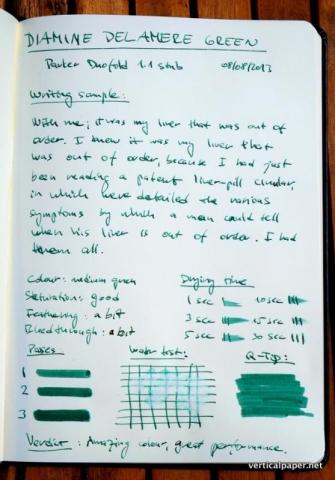 DIAMINE DELAMERE GREEN
Parker Duofold 1.1 stub 08/08/2013
Writing sample:
With me, it was my liver that was out of
order. I knew it was my liver that
was out of order, because I had just
been reading a patent liver-pill circular,
in which were detailed the various
symptoms by which a man could tell
when his liver is out of order. I had
them all.
Colour: medium green
Saturation: good
Feathering: a bit
Bleedthrough: a bit
Drying time
1 sec 10 sec
3 sec 15 sec
5 sec 30 sec
Passes
1
2
3
Water test:
Q-Tip:
Verdict: Amazing colour, great performance.
verticalpaper.net